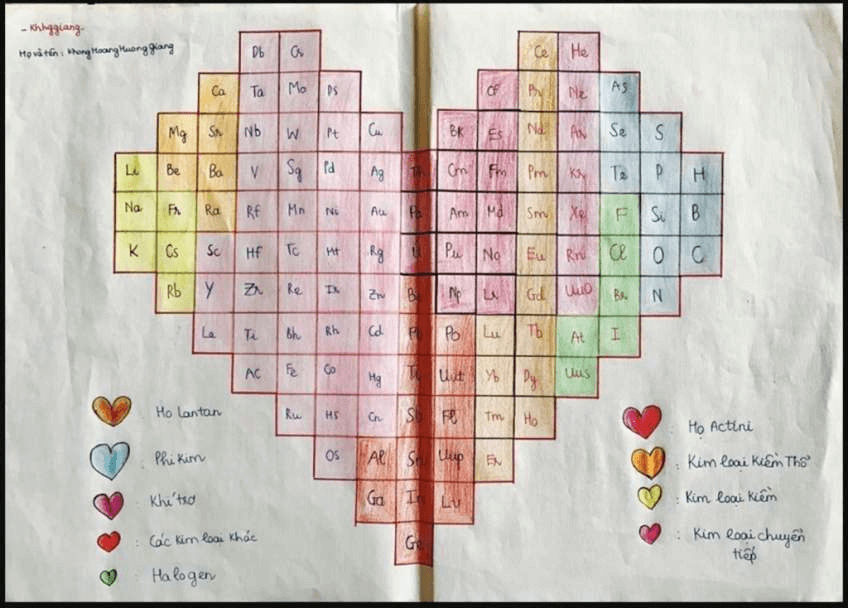 - Khhggiang-
Họ và tên : Khong Hoang Huong Giang
Db Cs Ce He
Ca Ta Mo Ds Cf Pr Ne As
Mg Sr Nb W Pt Cu BK Es Nd Ar Se S
Li Be Ba V Sg Pd Ag Th Cm Fm Pm Kr Te P H
Na Fr Ra Rf Mn Ni Au Pa Am Md Sm Xe F Si B
K Cs Sc Hf Tc Mt Rg U Pu No Eu Rn Cl O C
Rb Y Zr Re Ir Zn Bi Np Lr Gd UuO Br N
La Ti Bh Rh Cd Pb Po Lu Tb At I
AC Fe Co Hg Tl Uut Yb Dy Uus
Ru HS Cn Sb Fl Tm Ho
OS Al Sn Uup Er
Ga In Lv
Ge
Họ Lantan
Phi Kim
Khí trơ
: Các Kim loại Khác
: Halogen
: Họ Actini
: Kim loại Kiềm Thổ
: Kim loại Kiềm
: Kim loại chuyển
tiếp